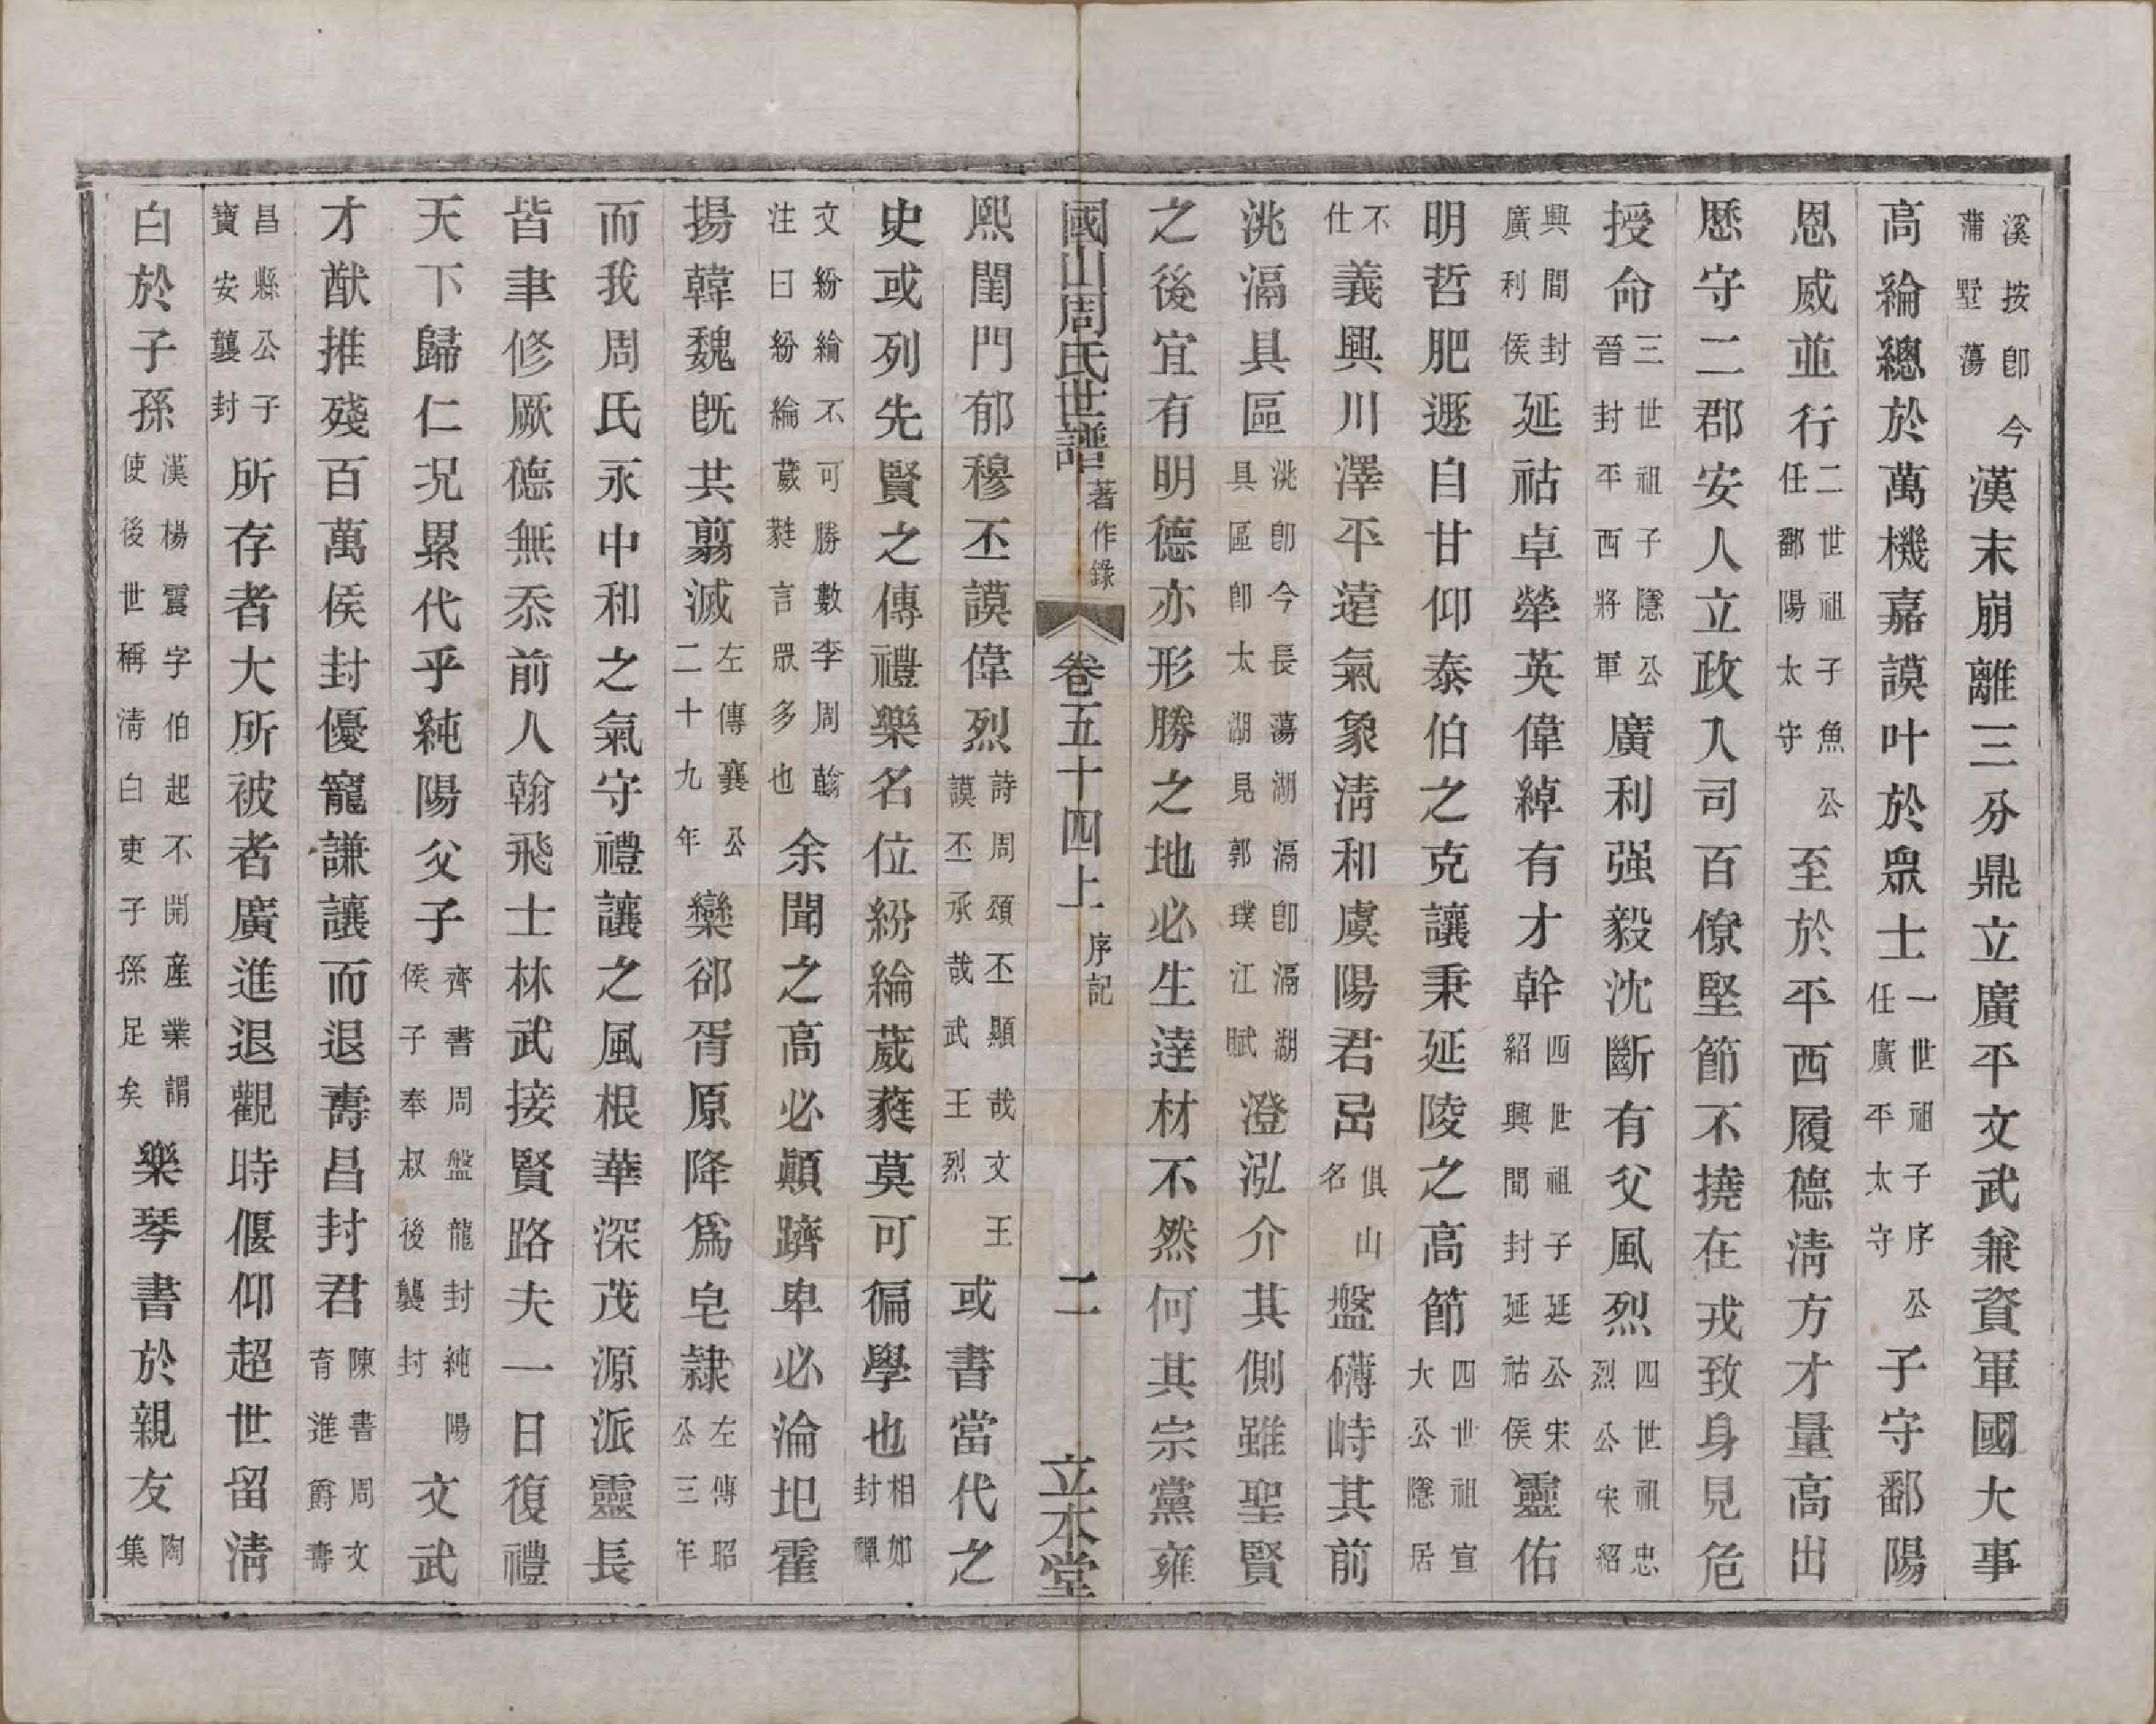 溪按卽今蒲墅蕩漢末崩離三分鼎立廣平文武兼資軍國大事
高綸總於萬機嘉謨叶於眾士一世祖子序公任廣平太守子守鄱陽
恩威並行二世祖子魚公任鄱陽太守至於平西履德清方才量高出
歷守二郡安人立政入司百僚堅節不撓在戎致身見危
授命三世祖子隱公晉封平西將軍廣利强毅沈斷有父風烈四世祖忠烈公宋紹
興間封廣利侯延祜卓犖英偉綽有才幹四世祖子延公宋紹興間封延祜侯靈佑
明哲肥遯自甘仰泰伯之克讓秉延陵之高節四世祖宣大公隱居
不仕義興川澤平遠氣象淸和虞陽君嵒俱山名盤礴峙其前
洮滆具區洮卽今長蕩湖滆卽滆湖具區卽太湖見郭璞江賦澄泓介其側雖聖賢
之後宜有明德亦形勝之地必生達材不然何其宗黨雍
國山周氏世譜 著作錄 卷五十四上 序記 二 立本堂
熙閨門郁穆丕謨偉烈詩周頌丕顯哉文王謨丕承哉武王烈或書當代之
史或列先賢之傳禮樂名位紛綸葳蕤莫可徧學也相如封禪
文紛綸不可勝數李周翰注曰紛綸葳蕤言眾多也余聞之高必顚躋卑必淪圯霍
揚韓魏旣共翦滅左傳襄公二十九年欒郤胥原降爲皂隸左傳昭公三年
而我周氏永中和之氣守禮讓之風根華深茂源派靈長
皆聿修厥德無忝前人翰飛士林武接賢路夫一日復禮
天下歸仁况累代乎純陽父子齊書周盤龍封純陽侯子奉叔後襲封文武
才猷摧殘百萬侯封優寵謙讓而退壽昌封君陳書周文育進爵壽
昌縣公子寶安襲封所存者大所被者廣進退觀時偃仰超世留淸
白於子孫漢楊震字伯起不開産業謂使後世稱淸白吏子孫足矣樂琴書於親友陶集